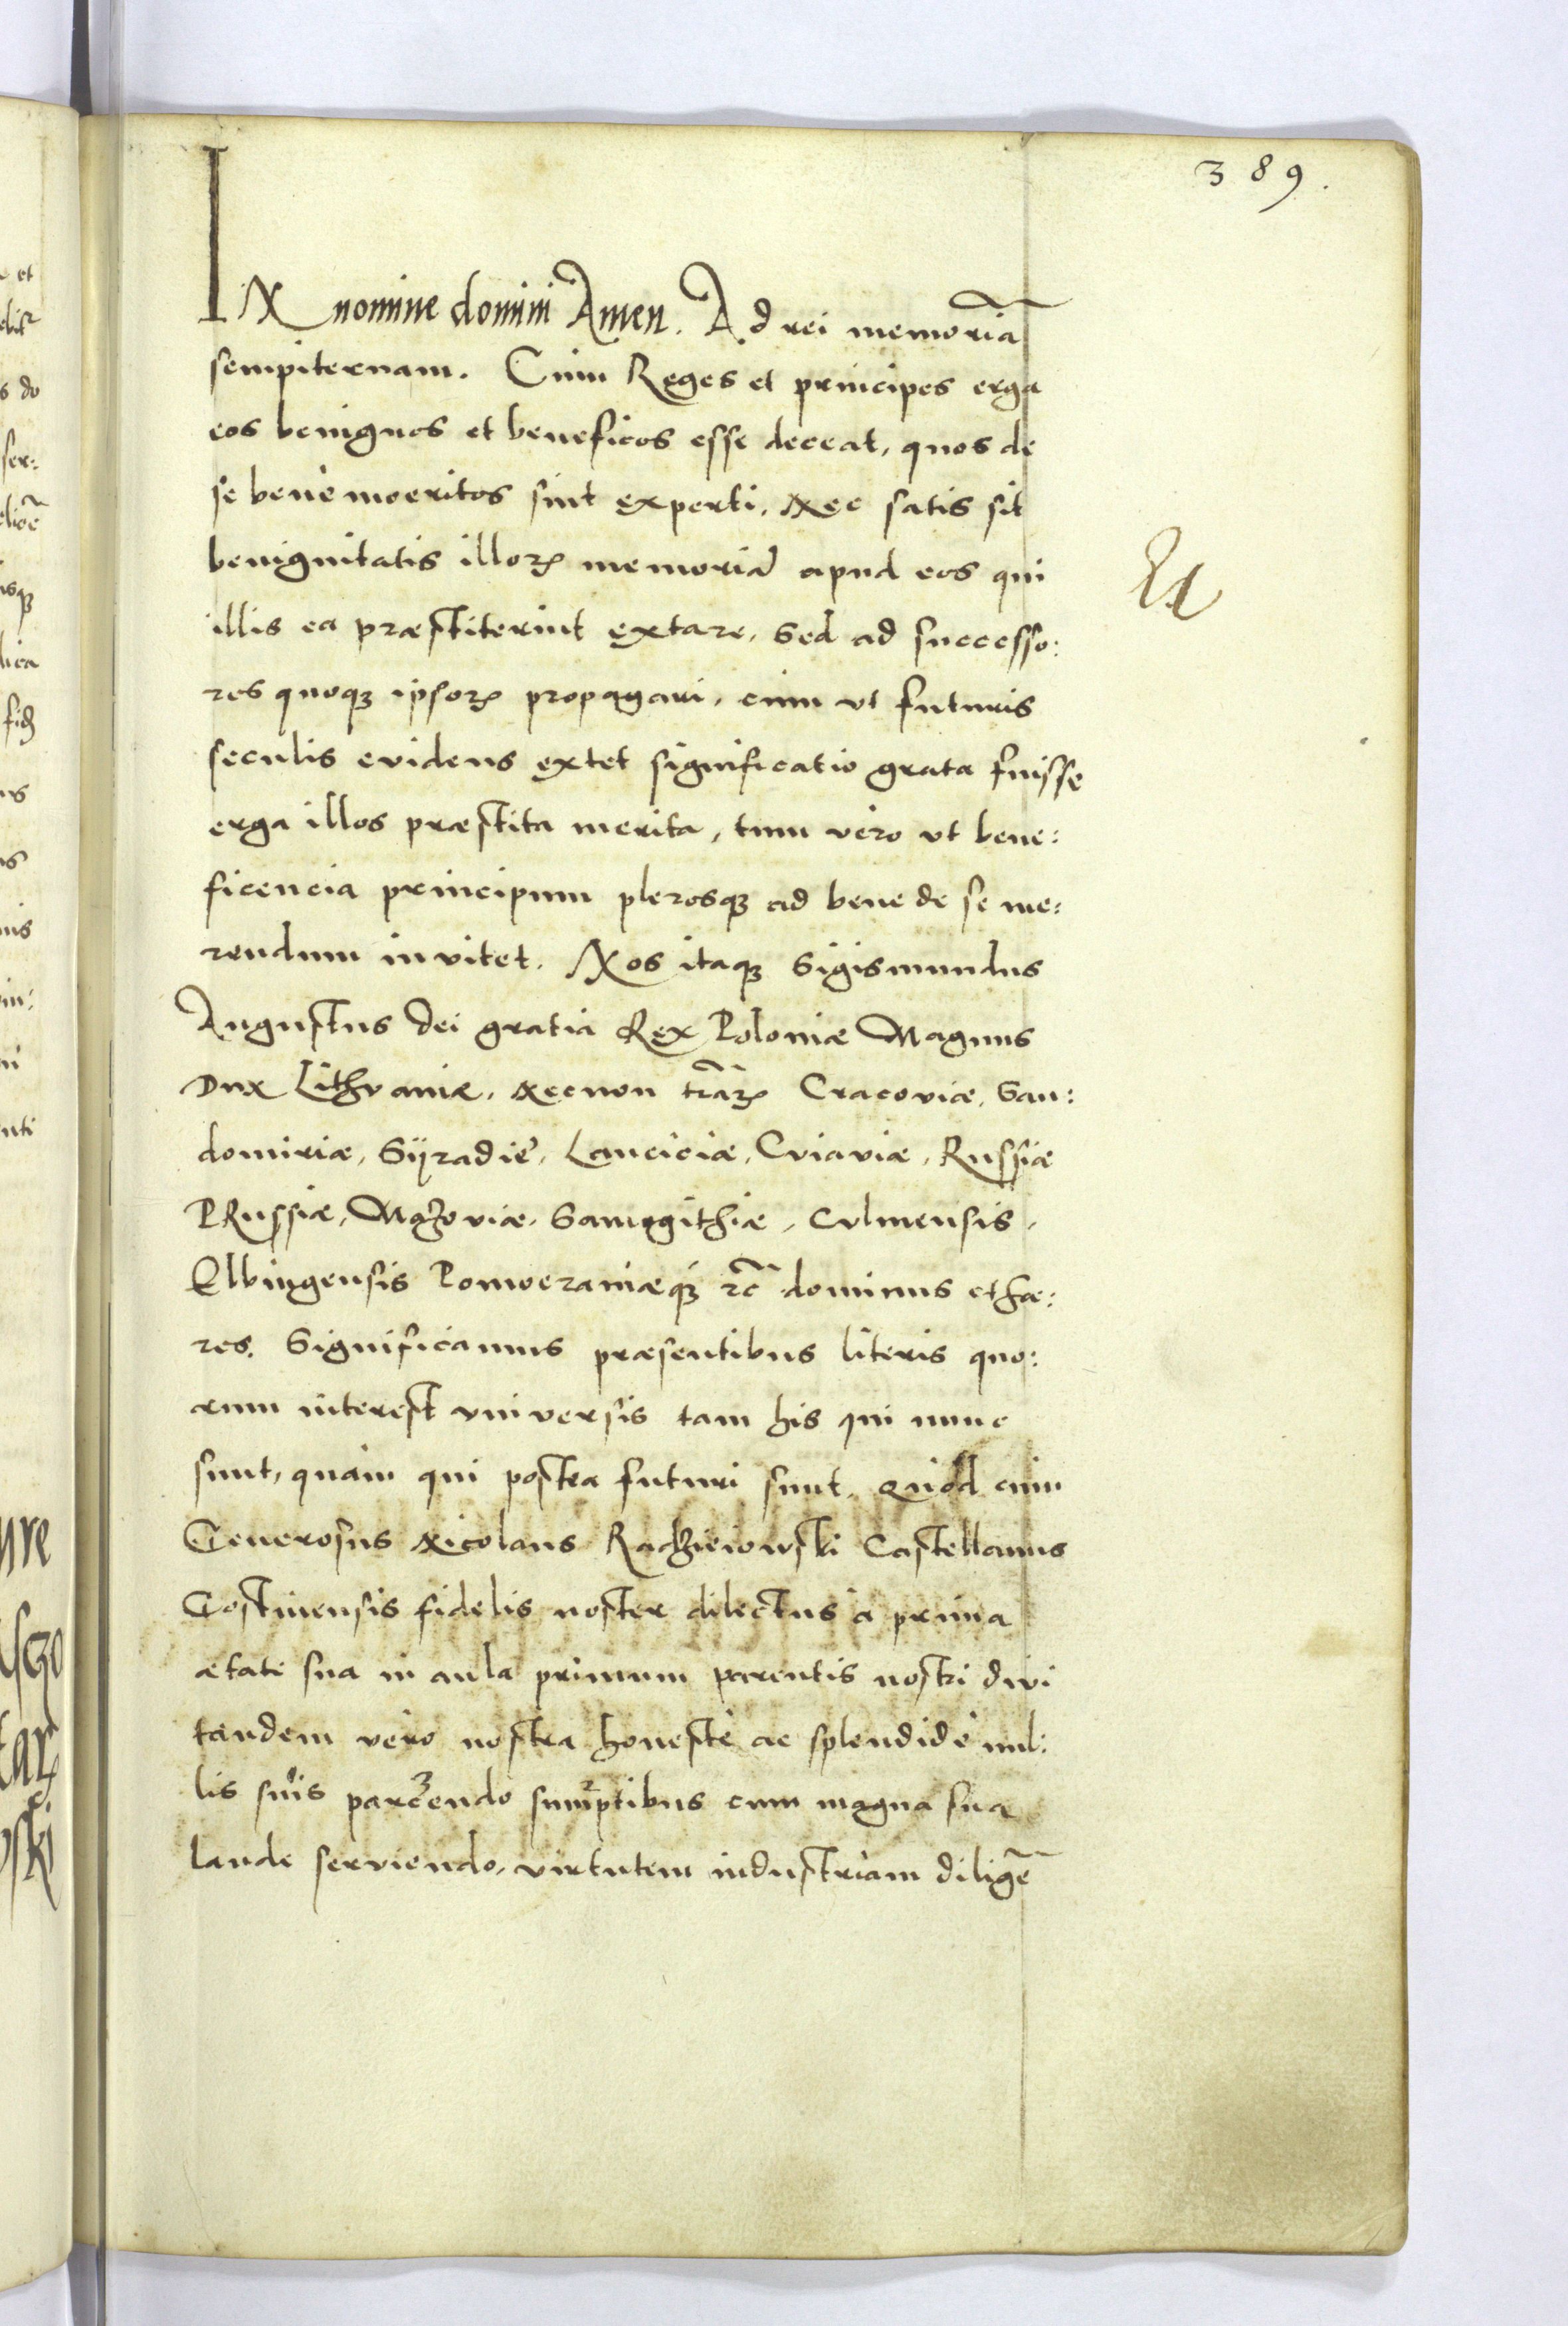 389.
IN nomine domini Amen. Ad rei memoriã
sempiternam. Cum Reges et principes erga
eos benignos et beneficos esse deceat, quos de
se bene moeritos sint experti, Nec satis sit
benignitatis illoꝝ memoriã apud eos qui
illis ea præstiterint extare, Sed ad successo:
res quoqꝫ ipsoꝝ propagari, cum vt futuris
seculis evidens extet significatio grata fuisse
erga illos præstita merita, tum vero vt bene:
ficencia principum plerosqꝫ ad bene de se me:
rendum invitet. Nos itaqꝫ Sigismundus
Augustus dei gratia Rex Poloniæ Magnus
Dux Lithvaniæ, Necnon trãꝝ Cracoviæ, San:
domiriæ, Syradie, Lanciciæ, Cviaviæ, Russiæ
PRussiæ, Mazoviæ, Samogithiæ, Culmensis,
Elbingensis Pomoeraniæqꝫ ꝛc̃ dominus et hæ:
res. Significamus præsentibus literis quo:
rum interest vniversis tam his qui nunc
sunt, quàm qui postea futuri sunt, Quòd cum
Generosus Nicolaus Radzieiowski Castellanus
Gostinensis fidelis noster dilectus à prima
ætate sua in aula primum parentis nostri divi
tandem vero nostra honestè ac splendidè nul:
lis suis parcendo sumptibus cum magna sua
laude serviendo, virtutem industriam diligẽ